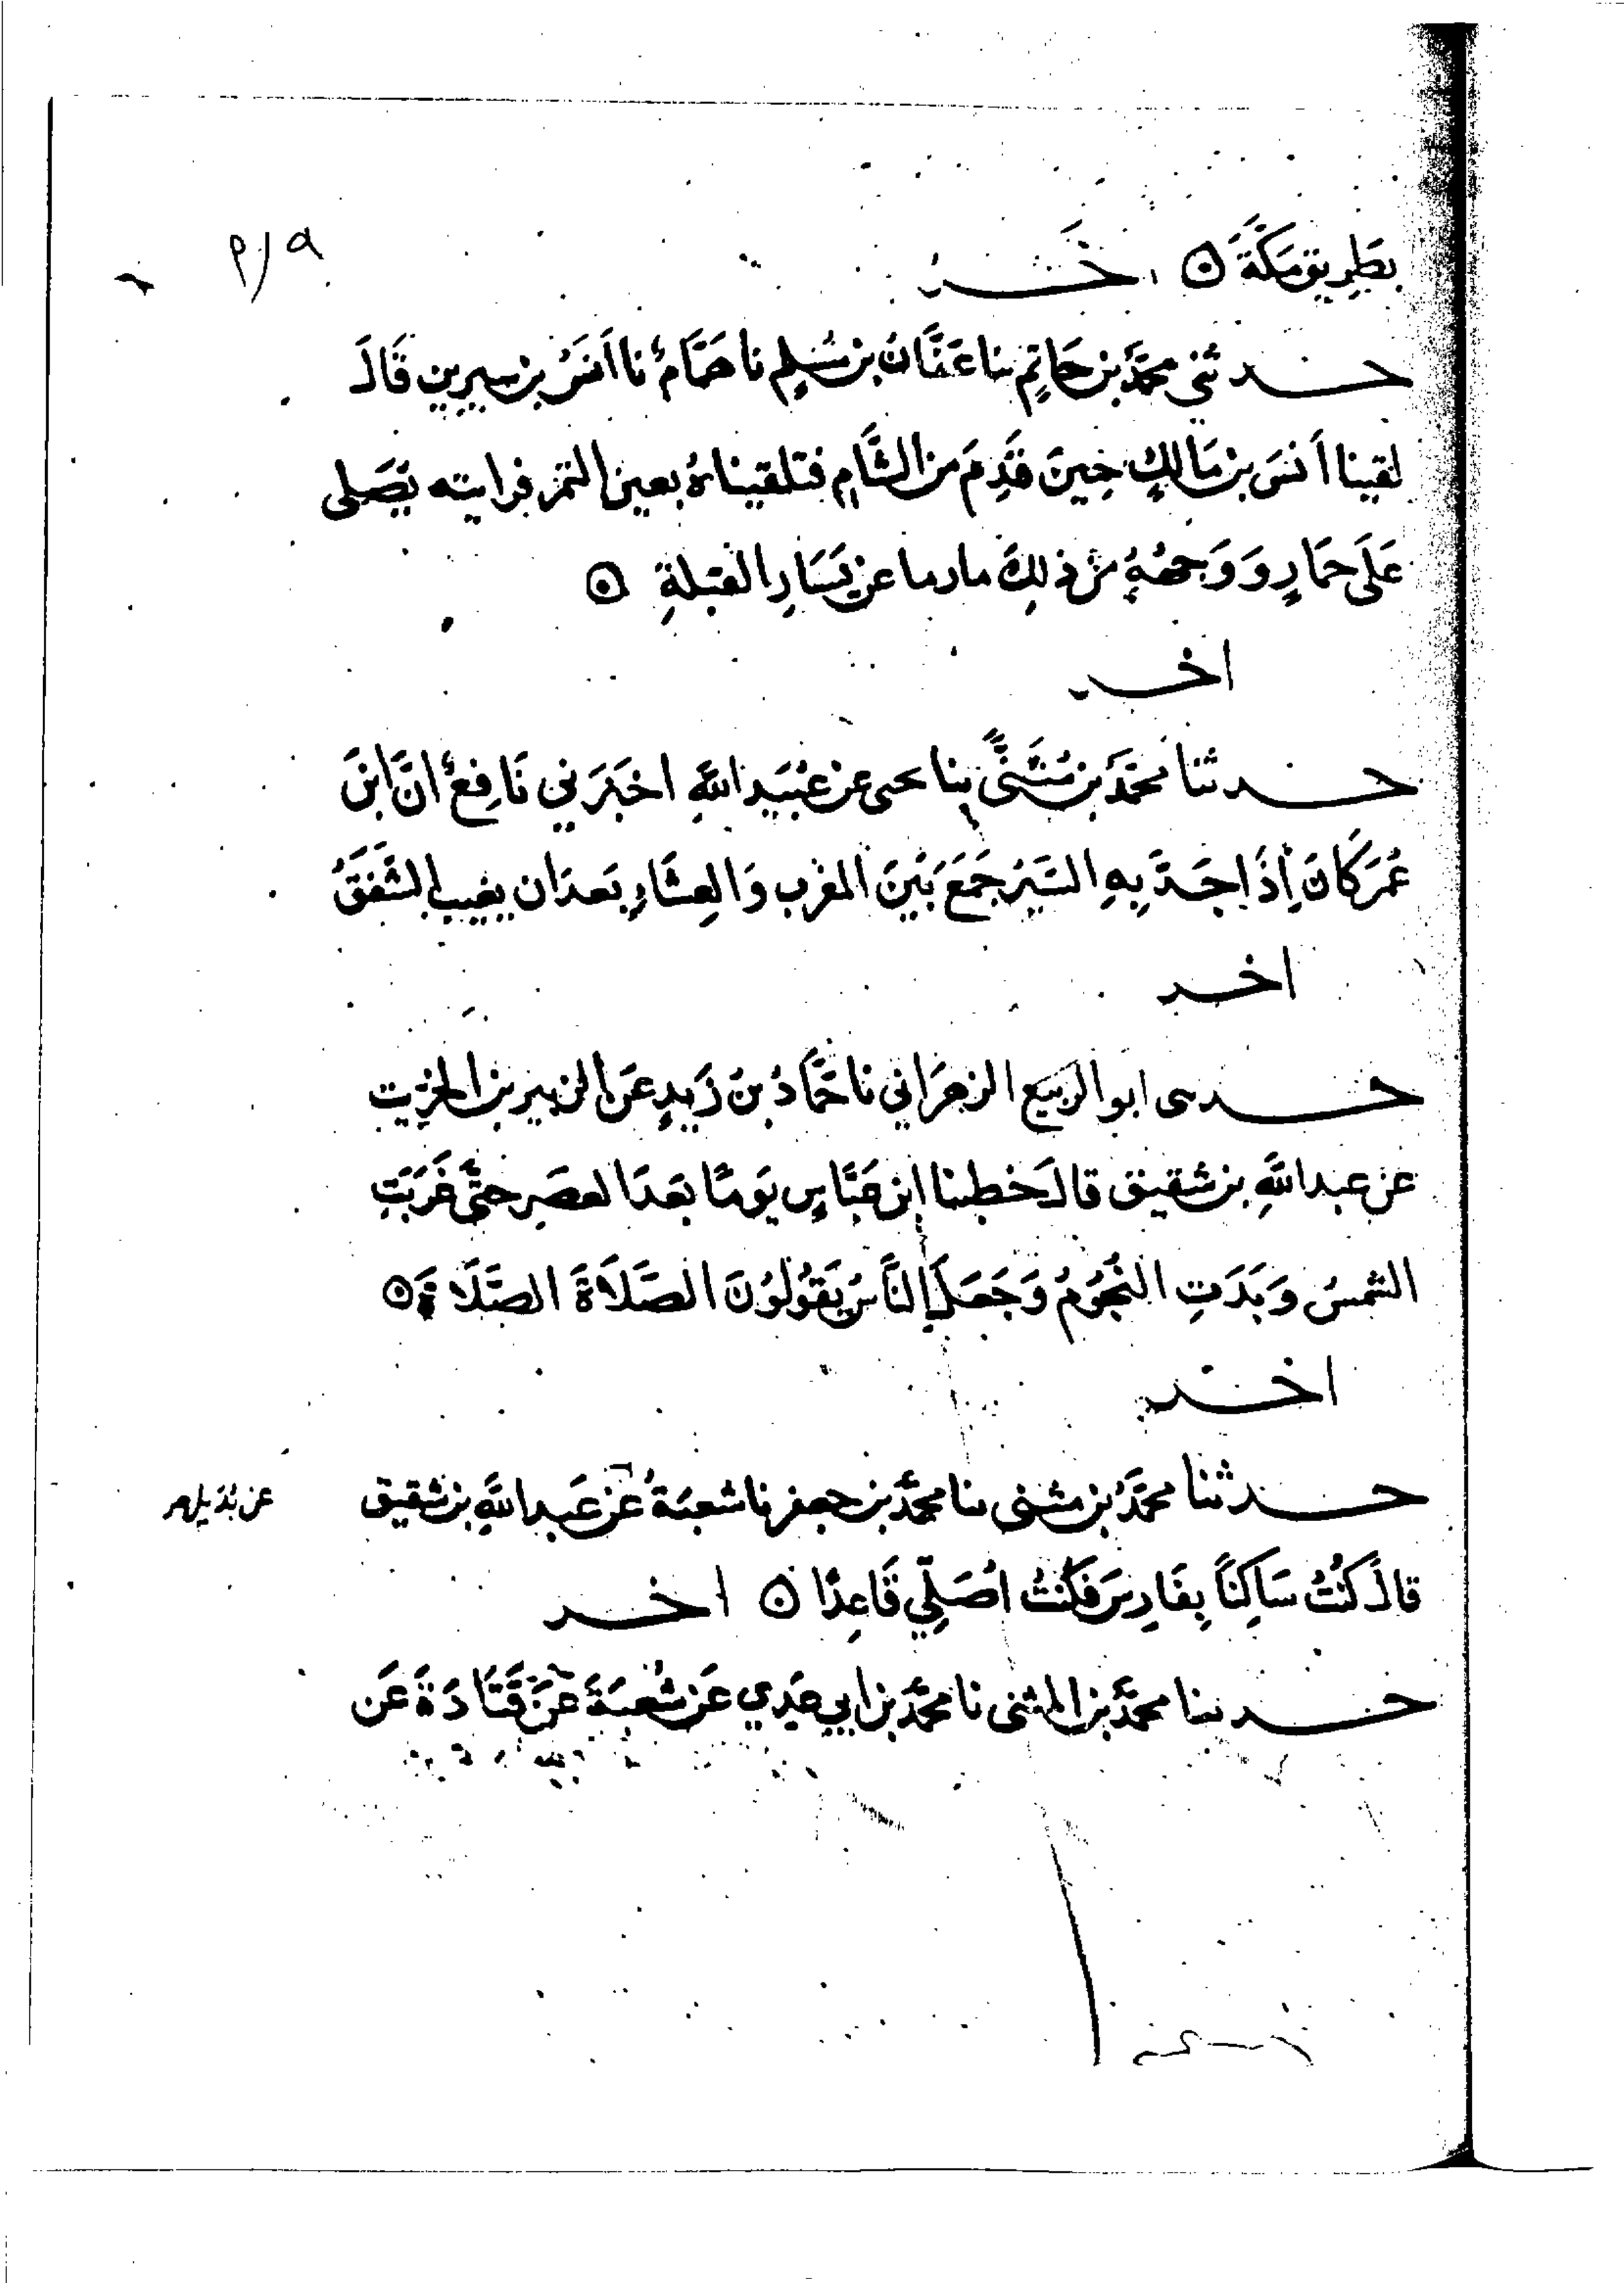 ٩/م
بطَرِيقِ مَكَّةَ ۞ اخَر
حدثني محمّد بن حَاتِم ثنا عَفَّانُ بن مُسْلِم نا هَمَّامٌ نا اَنَسُ بن سِيرِين قَالَ
لقينا اَنسَ بن مَالكٍ حِينَ قَدِمَ من الشَّامِ فتلقيناهُ بعين التمر فرايته يُصَلى
عَلَى حمَارٍ وَوَجهُهُ من ذلِكَ عن يَسَارِ القبلةِ ۞
اخر
حدثنا محمَّد بن مُثَنَّى ثنا يحيى عن عُبَيدِ اللهِ اخبَرَني نَافِعٌ انَّ ابنَ
عُمَرَ كَانَ اِذَا جَدَّ بِهِ السَّيرُ جَمَعَ بَيْنَ المغرب وَالعِشَاءِ بَعدَ ان يغيب الشَّفَقُ
اخر
حدثنى ابو الربيع الزهرَاني نا حَمَّادُ بنُ زَيدٍ عَن الزبير بن الخِرِّيت
عن عبد اللهِ بن شقيق قالَ خطبنا ابن عَبَّاسٍ يَومًا بَعدَ العصَرِ حتَّى غَرَبَتِ
الشمسُ وَبَدَتِ النُّجُومُ وَجَعَلَ النَّاسُ يَقُولُونَ الصَّلَاةَ الصَّلَاةَ ۞
اخر
حدثنا محمَّدُ بن مثنى ثنا محمَّد بن جعفر نا شعبَةُ عَن عَبد اللهِ بن شقيق
عن بُدَيل
قالَ كنْتُ سَاكِنًا بِفَارِسَ فَكُنْتُ اُصَلِّي قَاعِدًا ۞ اخر
حدثنا محمَّد بن المثنى نا محمَّد بن ابي عَدِي عَن شُعبَةَ عَن قَتَادَةَ عَن